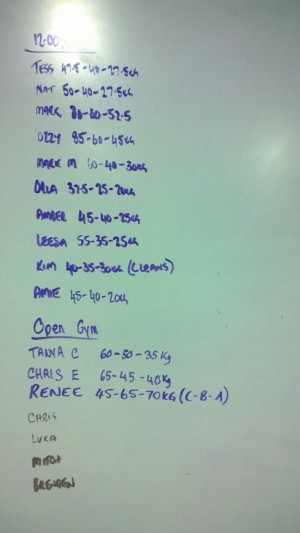 12:00
TESS 47.5-40-27.5KG
NAT 50-40-27.5KG
MARC 80-60-52.5
OZZY 85-60-45KG
MARK M 60-40-30KG
ORLA 37.5-25-20KG
AMBER 45-40-25KG
LEESA 55-35-25KG
KIM 40-35-30KG (CLEANS)
AMIE 45-40-20KG
Open Gym
TANYA C 60-50-35Kg
CHRIS E 65-45-40Kg
RENEE 45-65-70KG (C-B-A)
CHRIS
LUKA
MITCH
BRENDEN